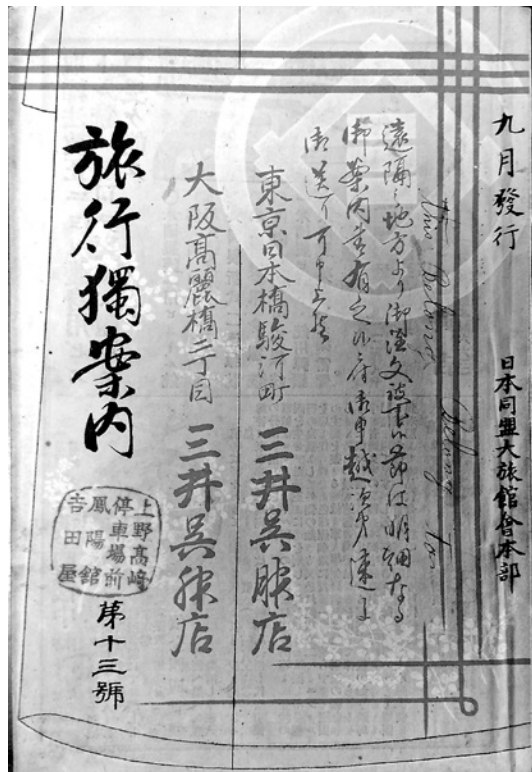 九月發行
日本同盟大旅館會本部
This Belong Belong to
遠隔之地方より御注文被下候節は明細なる
御案内書有之候ニ付御申越次第速ニ
御送り可申上候
東京日本橋駿河町 三井呉服店
大阪高麗橋二丁目 三井呉服店
旅行獨案内
上野高崎
停車場前
鳳陽館
吉田屋
第十三號